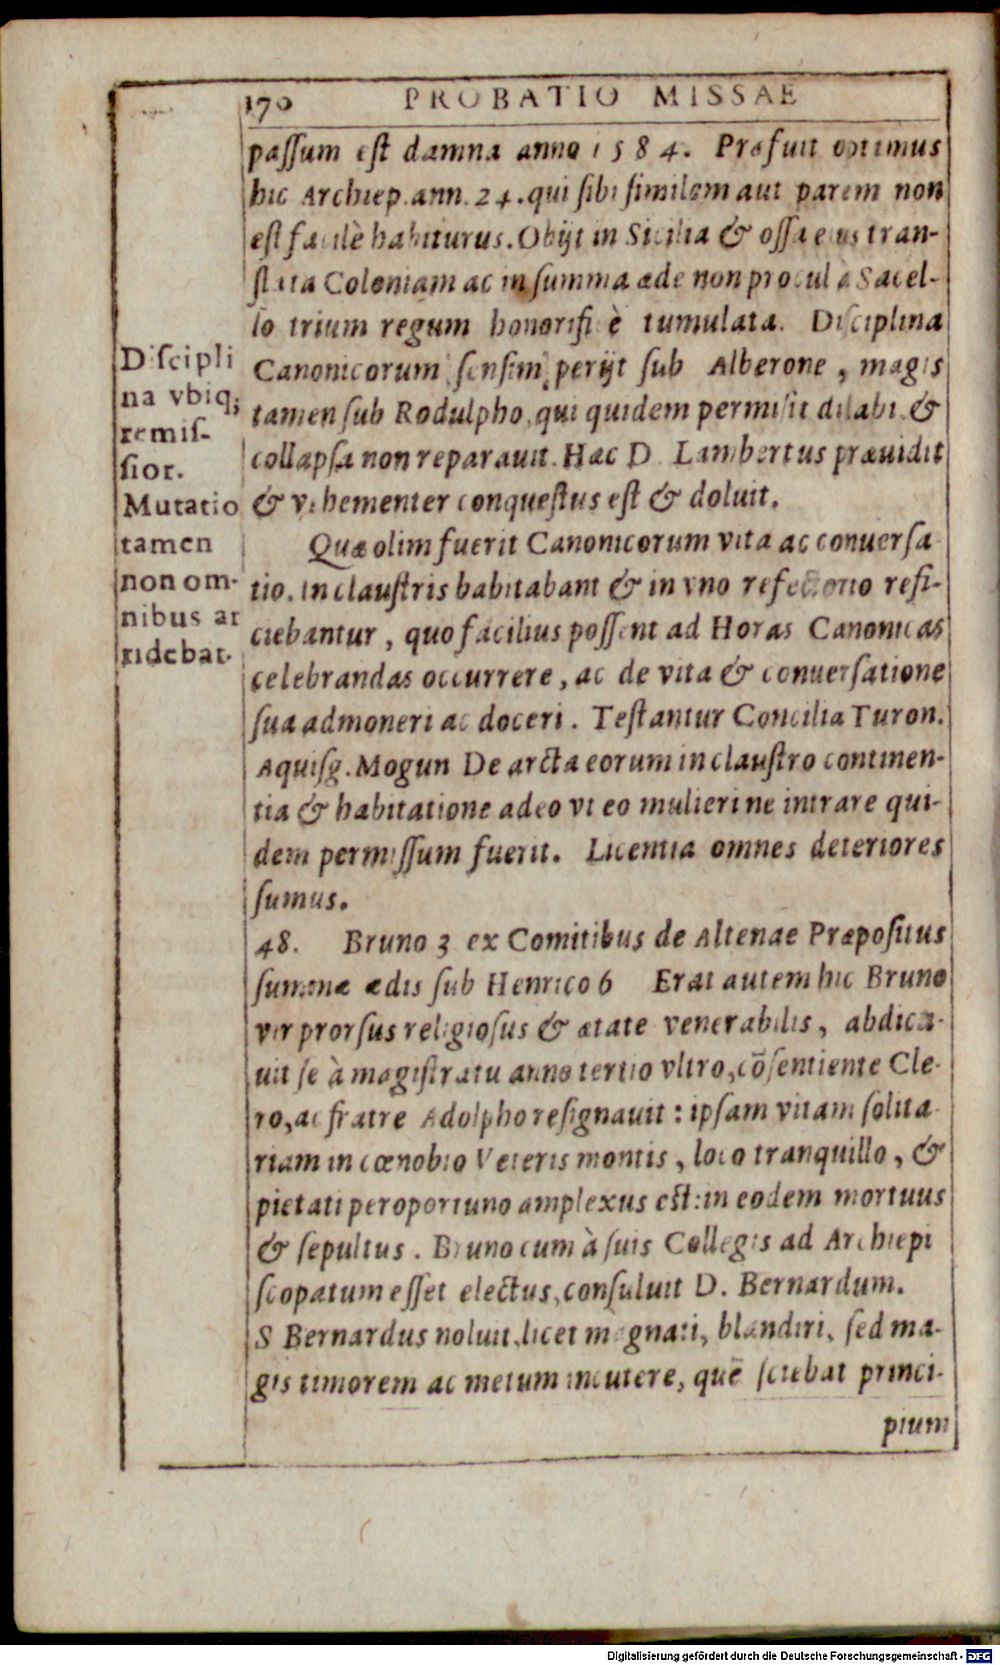 170 PROBATIO MISSAE
paſſum eſt damna anno 1584. Præfuit optimus
hic Archiep. ann. 24. qui ſibi ſimilem aut parem non
eſt facilè habiturus. Obijt in Sicilia & oſſa eius tran-
ſlata Coloniam ac in ſumma æde non procul à Sacel-
lo trium regum honorificè tumulata. Diſciplina
Canonicorum ſenſim perijt ſub Alberone, magis
tamen ſub Rodulpho, qui quidem permiſit dilabi &
collapſa non reparauit. Hæc D. Lambertus præuidit
& vehementer conqueſtus eſt & doluit.
Diſcipli
na vbiq;
remiſ-
ſior.
Mutatio
tamen
non om-
nibus ar
ridebat.
Quæ olim fuerit Canonicorum vita ac conuerſa-
tio. In clauſtris habitabant & in vno refectorio refi-
ciebantur, quo facilius poſſent ad Horas Canonicas
celebrandas occurrere, ac de vita & conuerſatione
ſua admoneri ac doceri. Teſtantur Concilia Turon.
Aquiſg. Mogun De arcta eorum in clauſtro continen-
tia & habitatione adeo vt eo mulieri ne intrare qui-
dem permiſſum fuerit. Licentia omnes deteriores
ſumus.
48. Bruno 3 ex Comitibus de Altenae Præpoſitus
ſummæ ædis ſub Henrico 6 Erat autem hic Bruno
vir prorſus religioſus & ætate venerabilis, abdica-
uit ſe à magiſtratu anno tertio vltro, cõſentiente Cle-
ro, ac fratre Adolpho reſignauit: ipſam vitam ſolita-
riam in cœnobio Veteris montis, loco tranquillo, &
pietati peroportuno amplexus eſt: in eodem mortuus
& ſepultus. Bruno cum à ſuis Collegis ad Archiepi
ſcopatum eſſet electus, conſuluit D. Bernardum.
S Bernardus noluit, licet magnati, blandiri, ſed ma-
gis timorem ac metum incutere, quẽ ſciebat princi-
pium
Digitalisierung gefördert durch die Deutsche Forschungsgemeinschaft - DFG